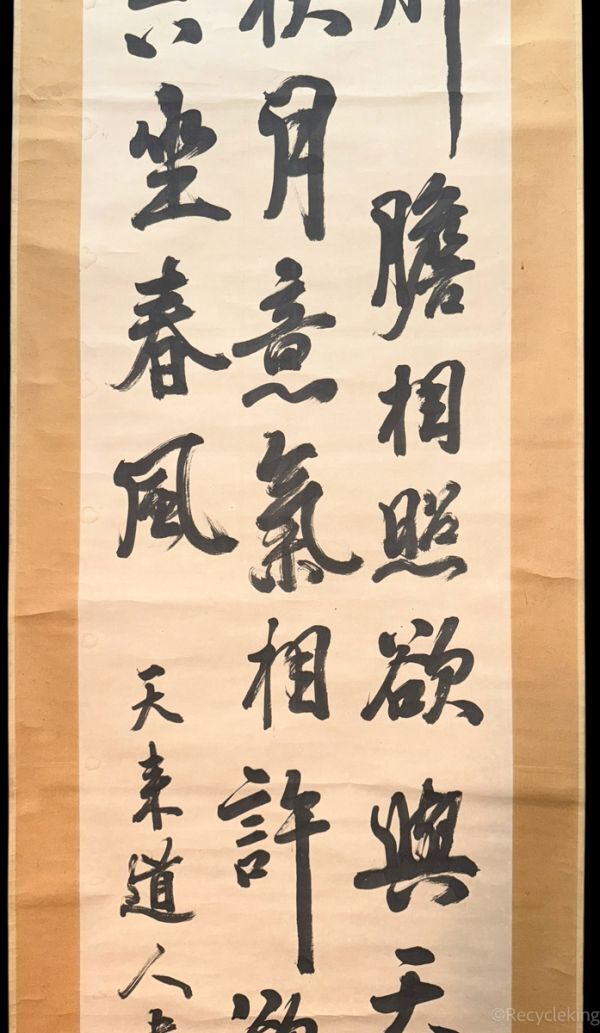 膽相照欲與天
秋月意氣相許
坐春風
天来道人
©Recycleking